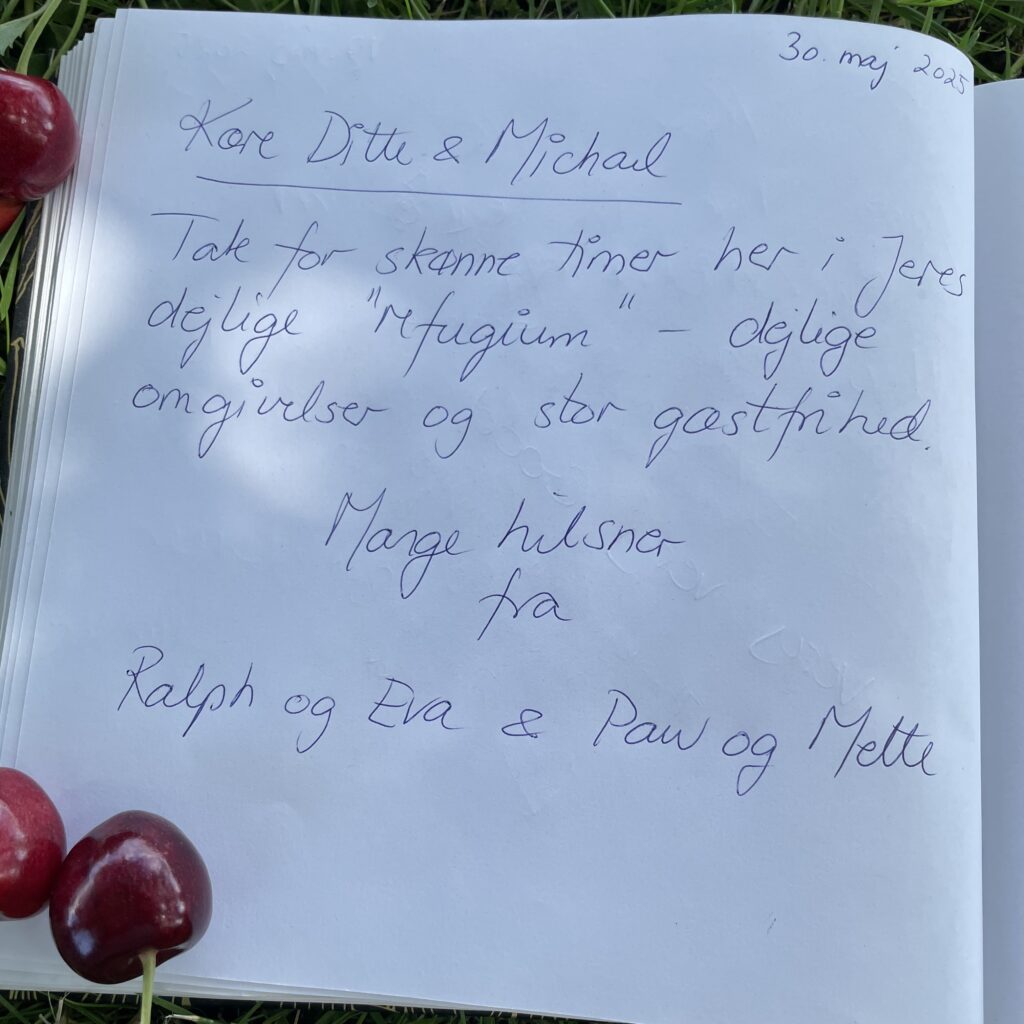 30. maj 2025
Kære Ditte & Michael
Tak for skønne timer her i Jeres
dejlige "refugium" – dejlige
omgivelser og stor gæstfrihed.
Mange hilsner
fra
Ralph og Eva & Paw og Mette